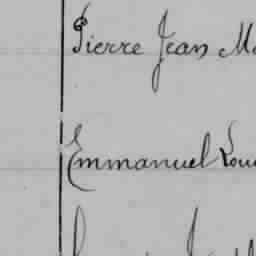 Pierre Jean M
Emmanuel Lou